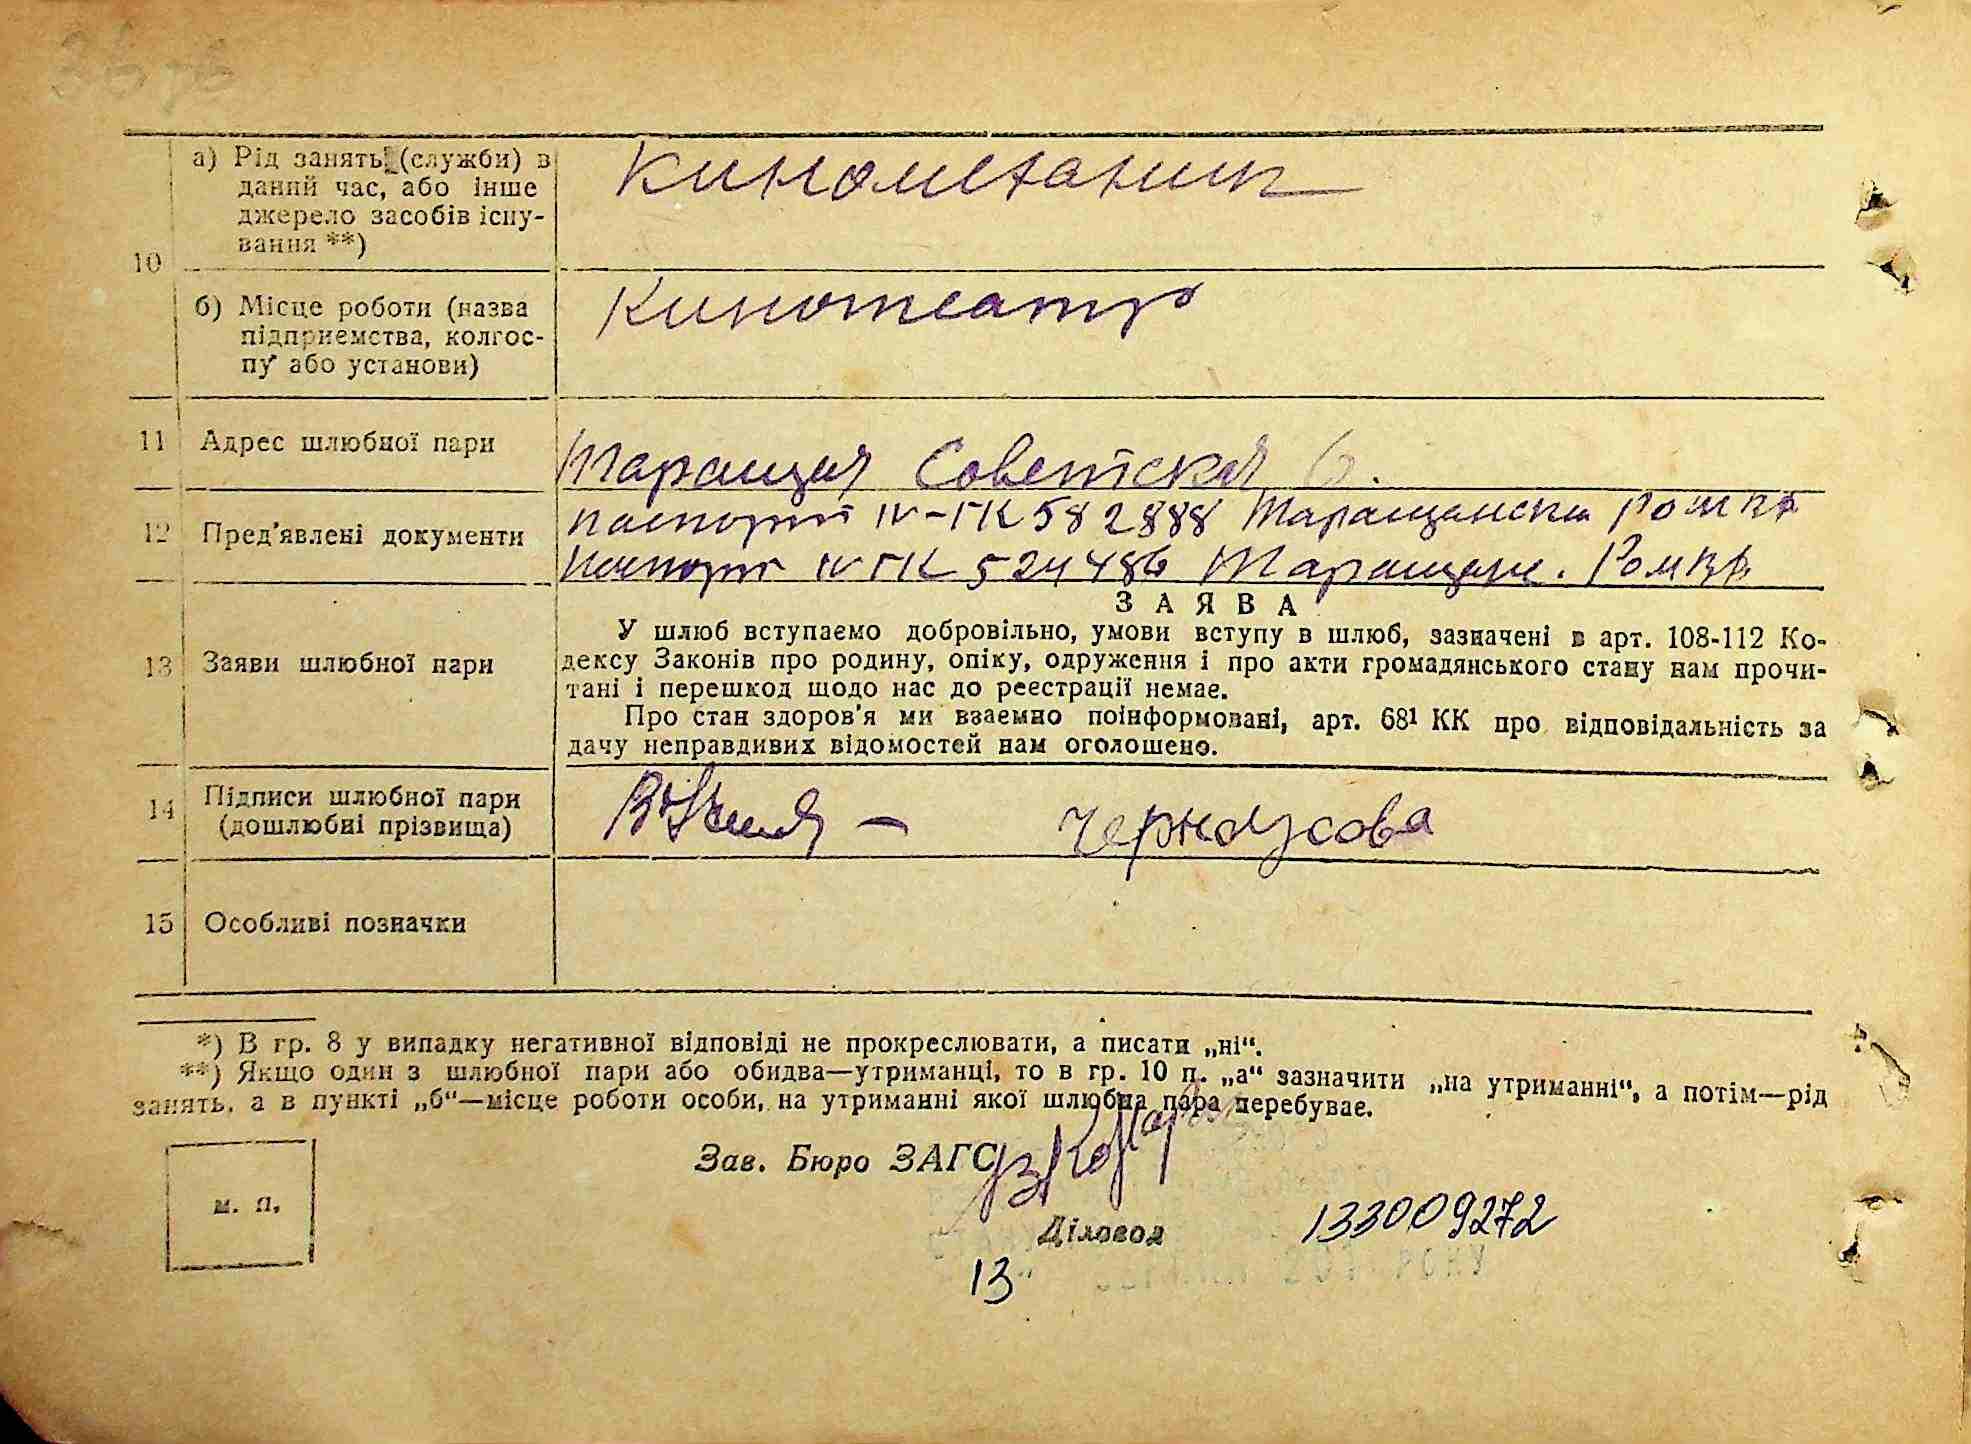 10
а) Рід занять (службы) в
даний час, або інше
джерело засобів існу-
вання **)
Киномеханик
б) Місце роботи (назва
підприємства, колгос-
пу або установи)
Кинотеатр
11 Адрес шлюбної пари
Тараща Советская 6.
12 Пред'явлені документи
паспорт IV-ГК 582888 Таращанским РОМВД
Паспорт IV ГК 524486 Таращанс. РОМВД
13 Заяви шлюбної пари
ЗАЯВА
У шлюб вступаємо добровільно, умови вступу в шлюб, зазначені в арт. 108-112 Ко-
дексу Законів про родину, опіку, одруження і про акти громадянського стану нам прочи-
тані і перешкод щодо нас до реєстрації немає.
Про стан здоров'я ми взаємно поінформовані, арт. 68¹ КК про відповідальність за
дачу неправдивих відомостей нам оголошено.
14 Підписи шлюбної пари
(дошлюбні прізвища)
Черноусова
15 Особливі позначки
*) В гр. 8 у випадку негативної відповіді не прокреслювати, а писати „ні“.
**) Якщо один з шлюбної пари або обидва—утриманці, то в гр. 10 п. „а“ зазначити „на утриманні“, а потім—рід
занять, а в пункті „б“—місце роботи особи, на утриманні якої шлюбна пара перебуває.
Зав. Бюро ЗАГС
м. п.
Діловод
133009272
13
РОКУ